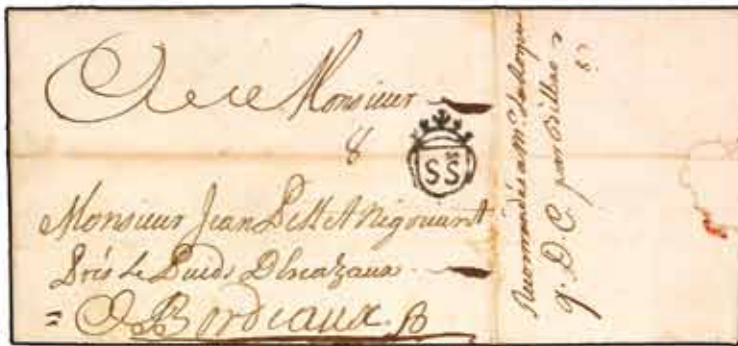 A Monsieur
8
SS
Monsieur Jean Pellet Négociant
Près Le Puids
A Bordeaux
Recommandée a Mr
q. D. C. par Bilbao